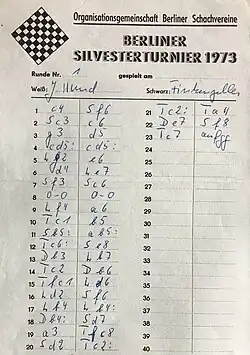 Organisationsgemeinschaft Berliner Schachvereine
BERLINER
SILVESTERTURNIER 1973
Runde Nr. 1 gespielt am
Weiß: J. Hund Schwarz:
1 c4 Sf6 21 Tc2: Ta4
2 Sc3 c6 22 De7 Sf8
3 g3 d5 23 Tc7 aufg
4 cd5: cd5: 24
5 Lg2 e6 25
6 d4 Le7 26
7 Sf3 Sc6 27
8 0-0 0-0 28
9 Lf4 a6 29
10 Tc1 b5 30
11 Sb5: ab5: 31
12 Tc6: Se8 32
13 Db3 Lb7 33
14 Tc2 Db6 34
15 Tfc1 Ld6 35
16 Ld2 Sf6 36
17 Lb4 Lb4: 37
18 Db4: Sd7 38
19 a3 Tfc8 39
20 Sd2 Tc2: 40